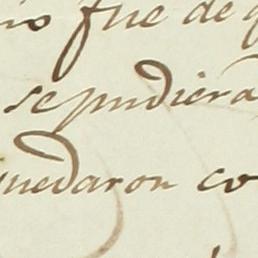 io fue de q
se pudiera
quedaron co